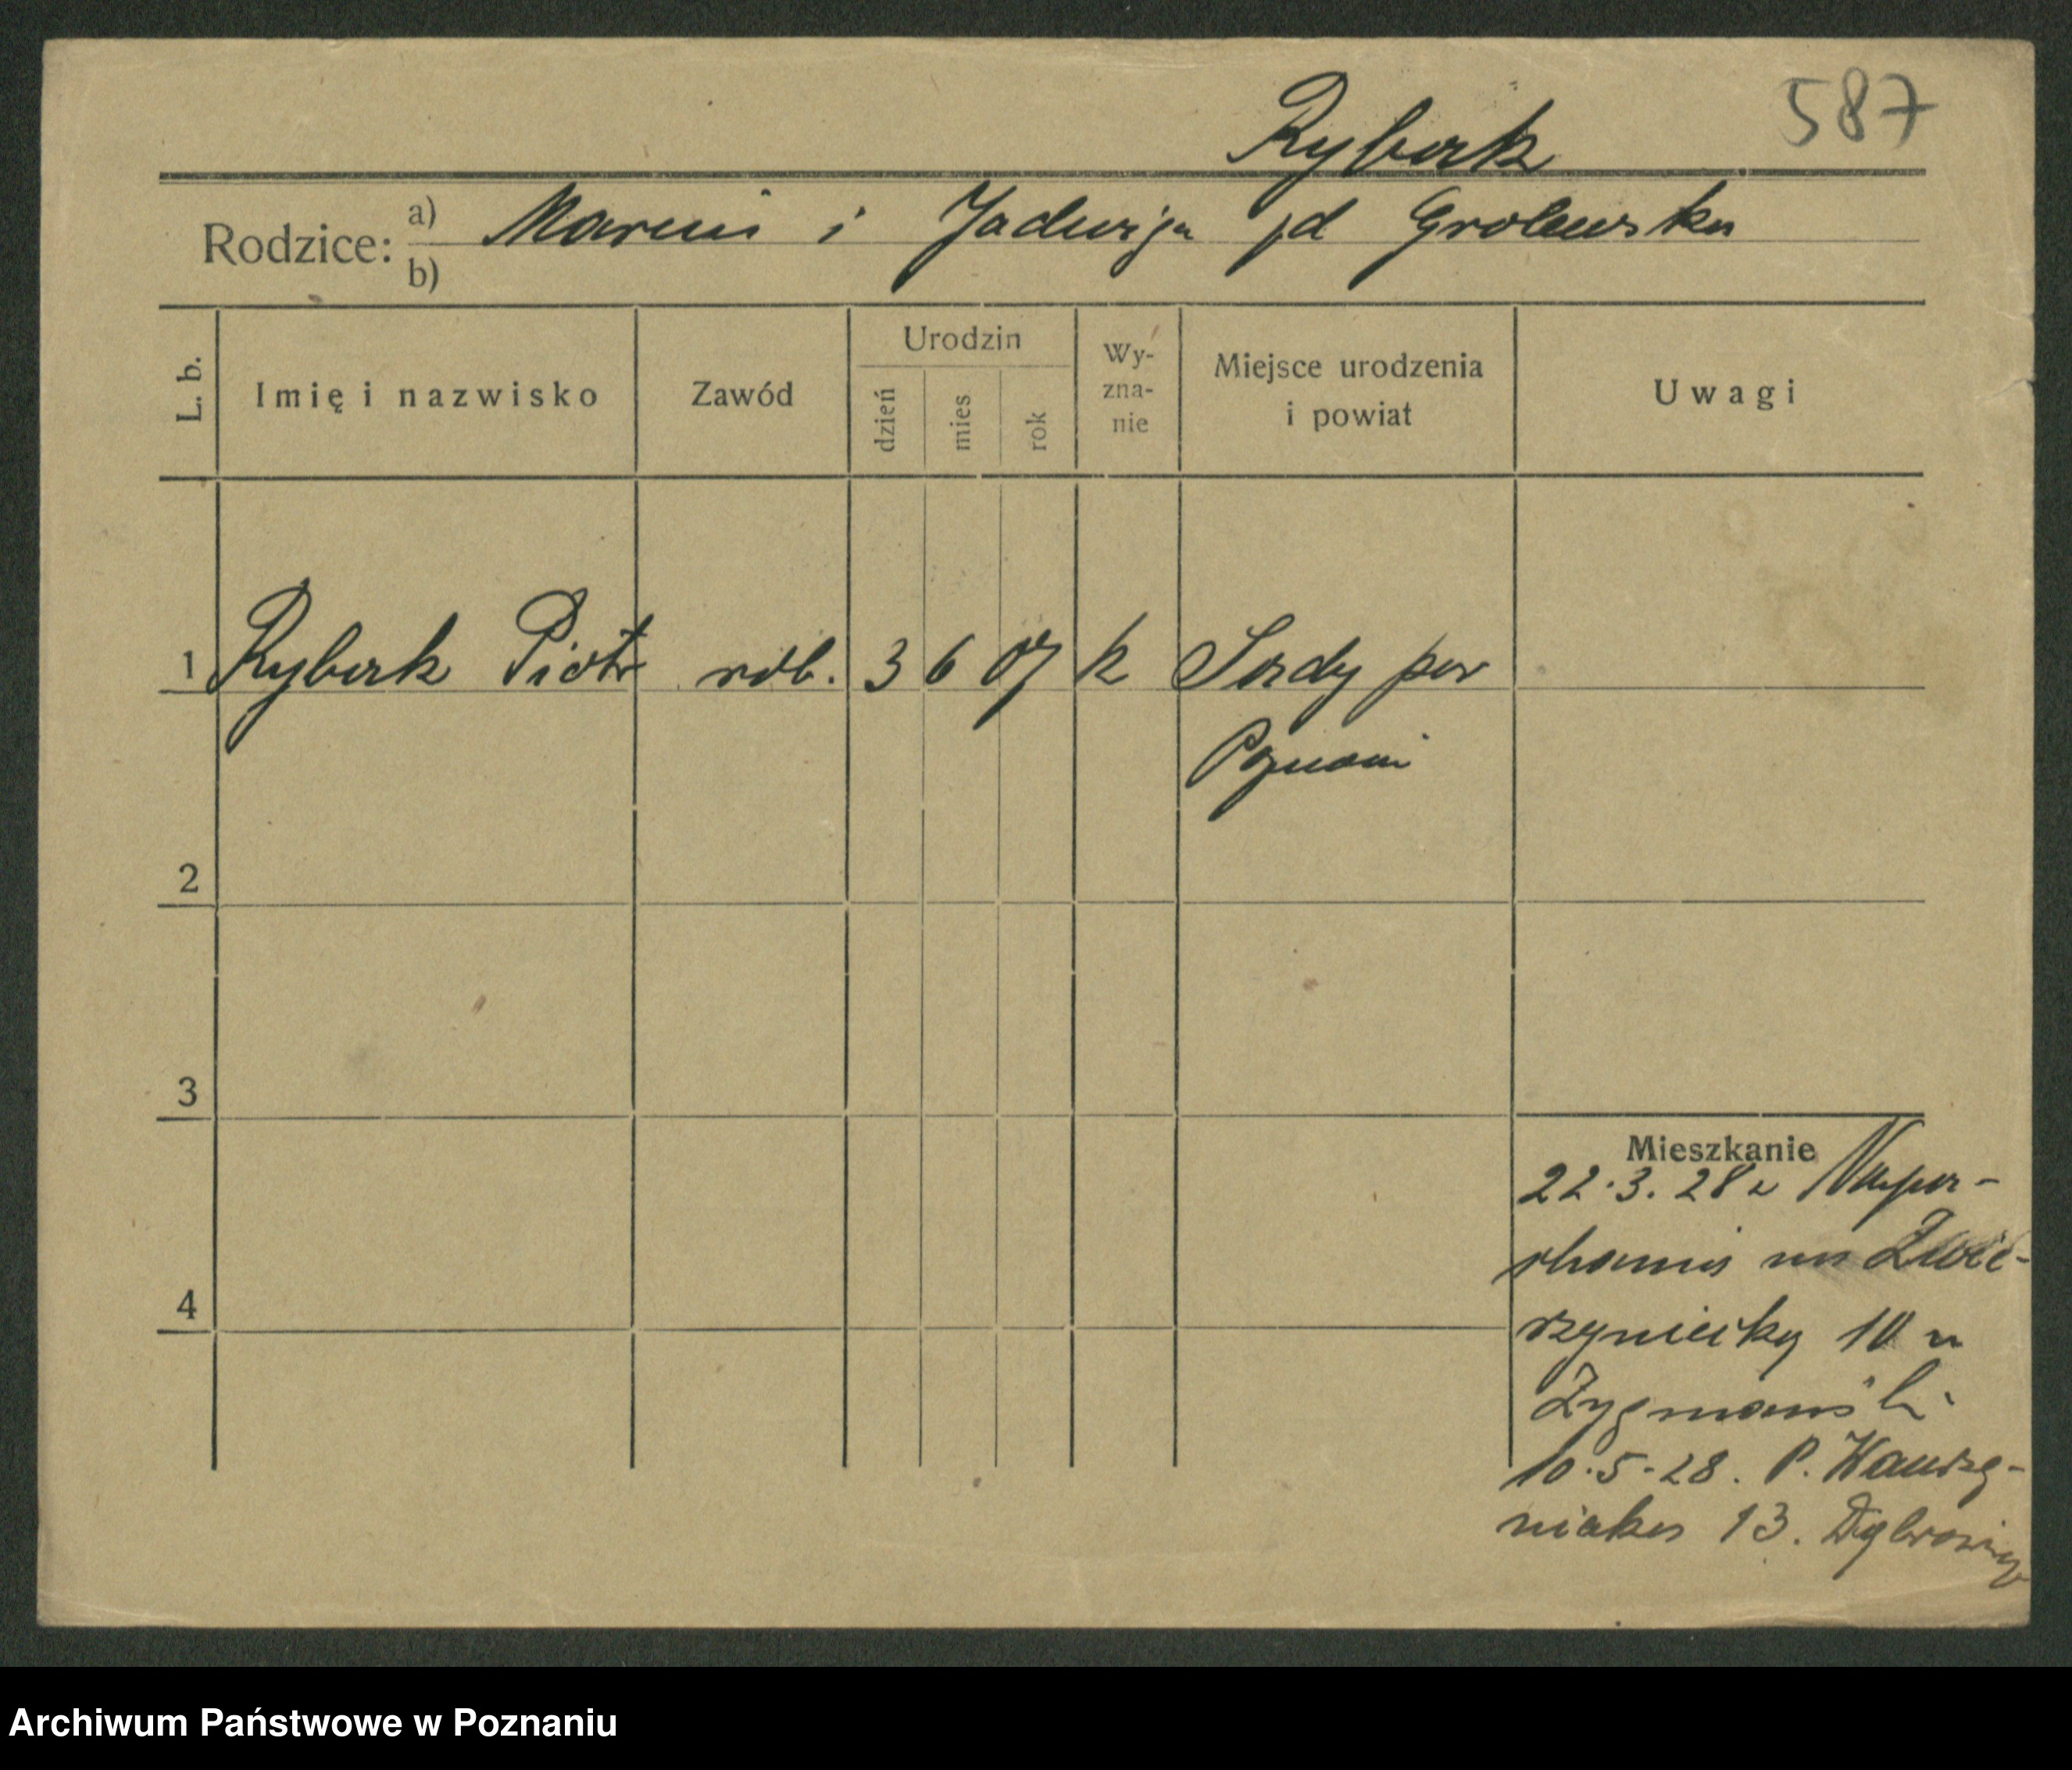 587
Rybak
Rodzice: a) Marcin i Jadwiga zd Grolewska
b)
L. b. Imię i nazwisko Zawód Urodzin dzień mies rok Wy-zna-nie Miejsce urodzenia i powiat Uwagi
1 Rybak Piotr rob. 3 6 07 k Sady pow
Poznań
2
3
Mieszkanie
22.3.28 z
na Zwie-
4
rzyniecką 10 u
10.5.28. P. Wawrzy-
niaka 13.
Archiwum Państwowe w Poznaniu